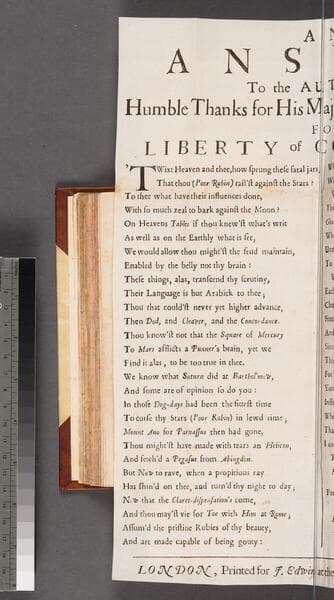 AN
ANS
To the AUT
Humble Thanks for His Maj
FO
LIBERTY of CO
'TWixt Heaven and thee, how sprung these fatal jars,
That thou (Poor Robin) rail'st against the Stars?
To thee what have their influences done,
With so much zeal to bark against the Moon?
On Heavens Table if thou knew'st what's writ
As well as on the Earthly what is set,
We would allow thou might'st the feud maintain,
Enabled by the belly not thy brain:
These things, alas, transcend thy scrutiny,
Their Language is but Arabick to thee;
Thou that could'st never yet higher advance,
Then Dod, and Cleaver, and the Concordance.
Thou know'st not that the Square of Mercury
To Mars afflicts a Punner's brain, yet we
Find it alas, to be too true in thee.
We know what Saturn did at Bartholmew,
And some are of opinion so do you:
In those Dog-days had been the fittest time
To curse thy Stars (Poor Robin) in lewd rime;
Mount Ano for Parnassus then had gone,
Thou might'st have made with tears an Helicon,
And fetch'd a Pegasus from Abingdon.
But Now to rave, when a propitious ray
Has shin'd on thee, and turn'd thy night to day;
Now that the Claret-dispensation's come,
And thou may'st vie for Toe with Him at Rome;
Assum'd the pristine Rubies of thy beauty,
And art made capable of being gouty:
LONDON, Printed for J. Edwin at the